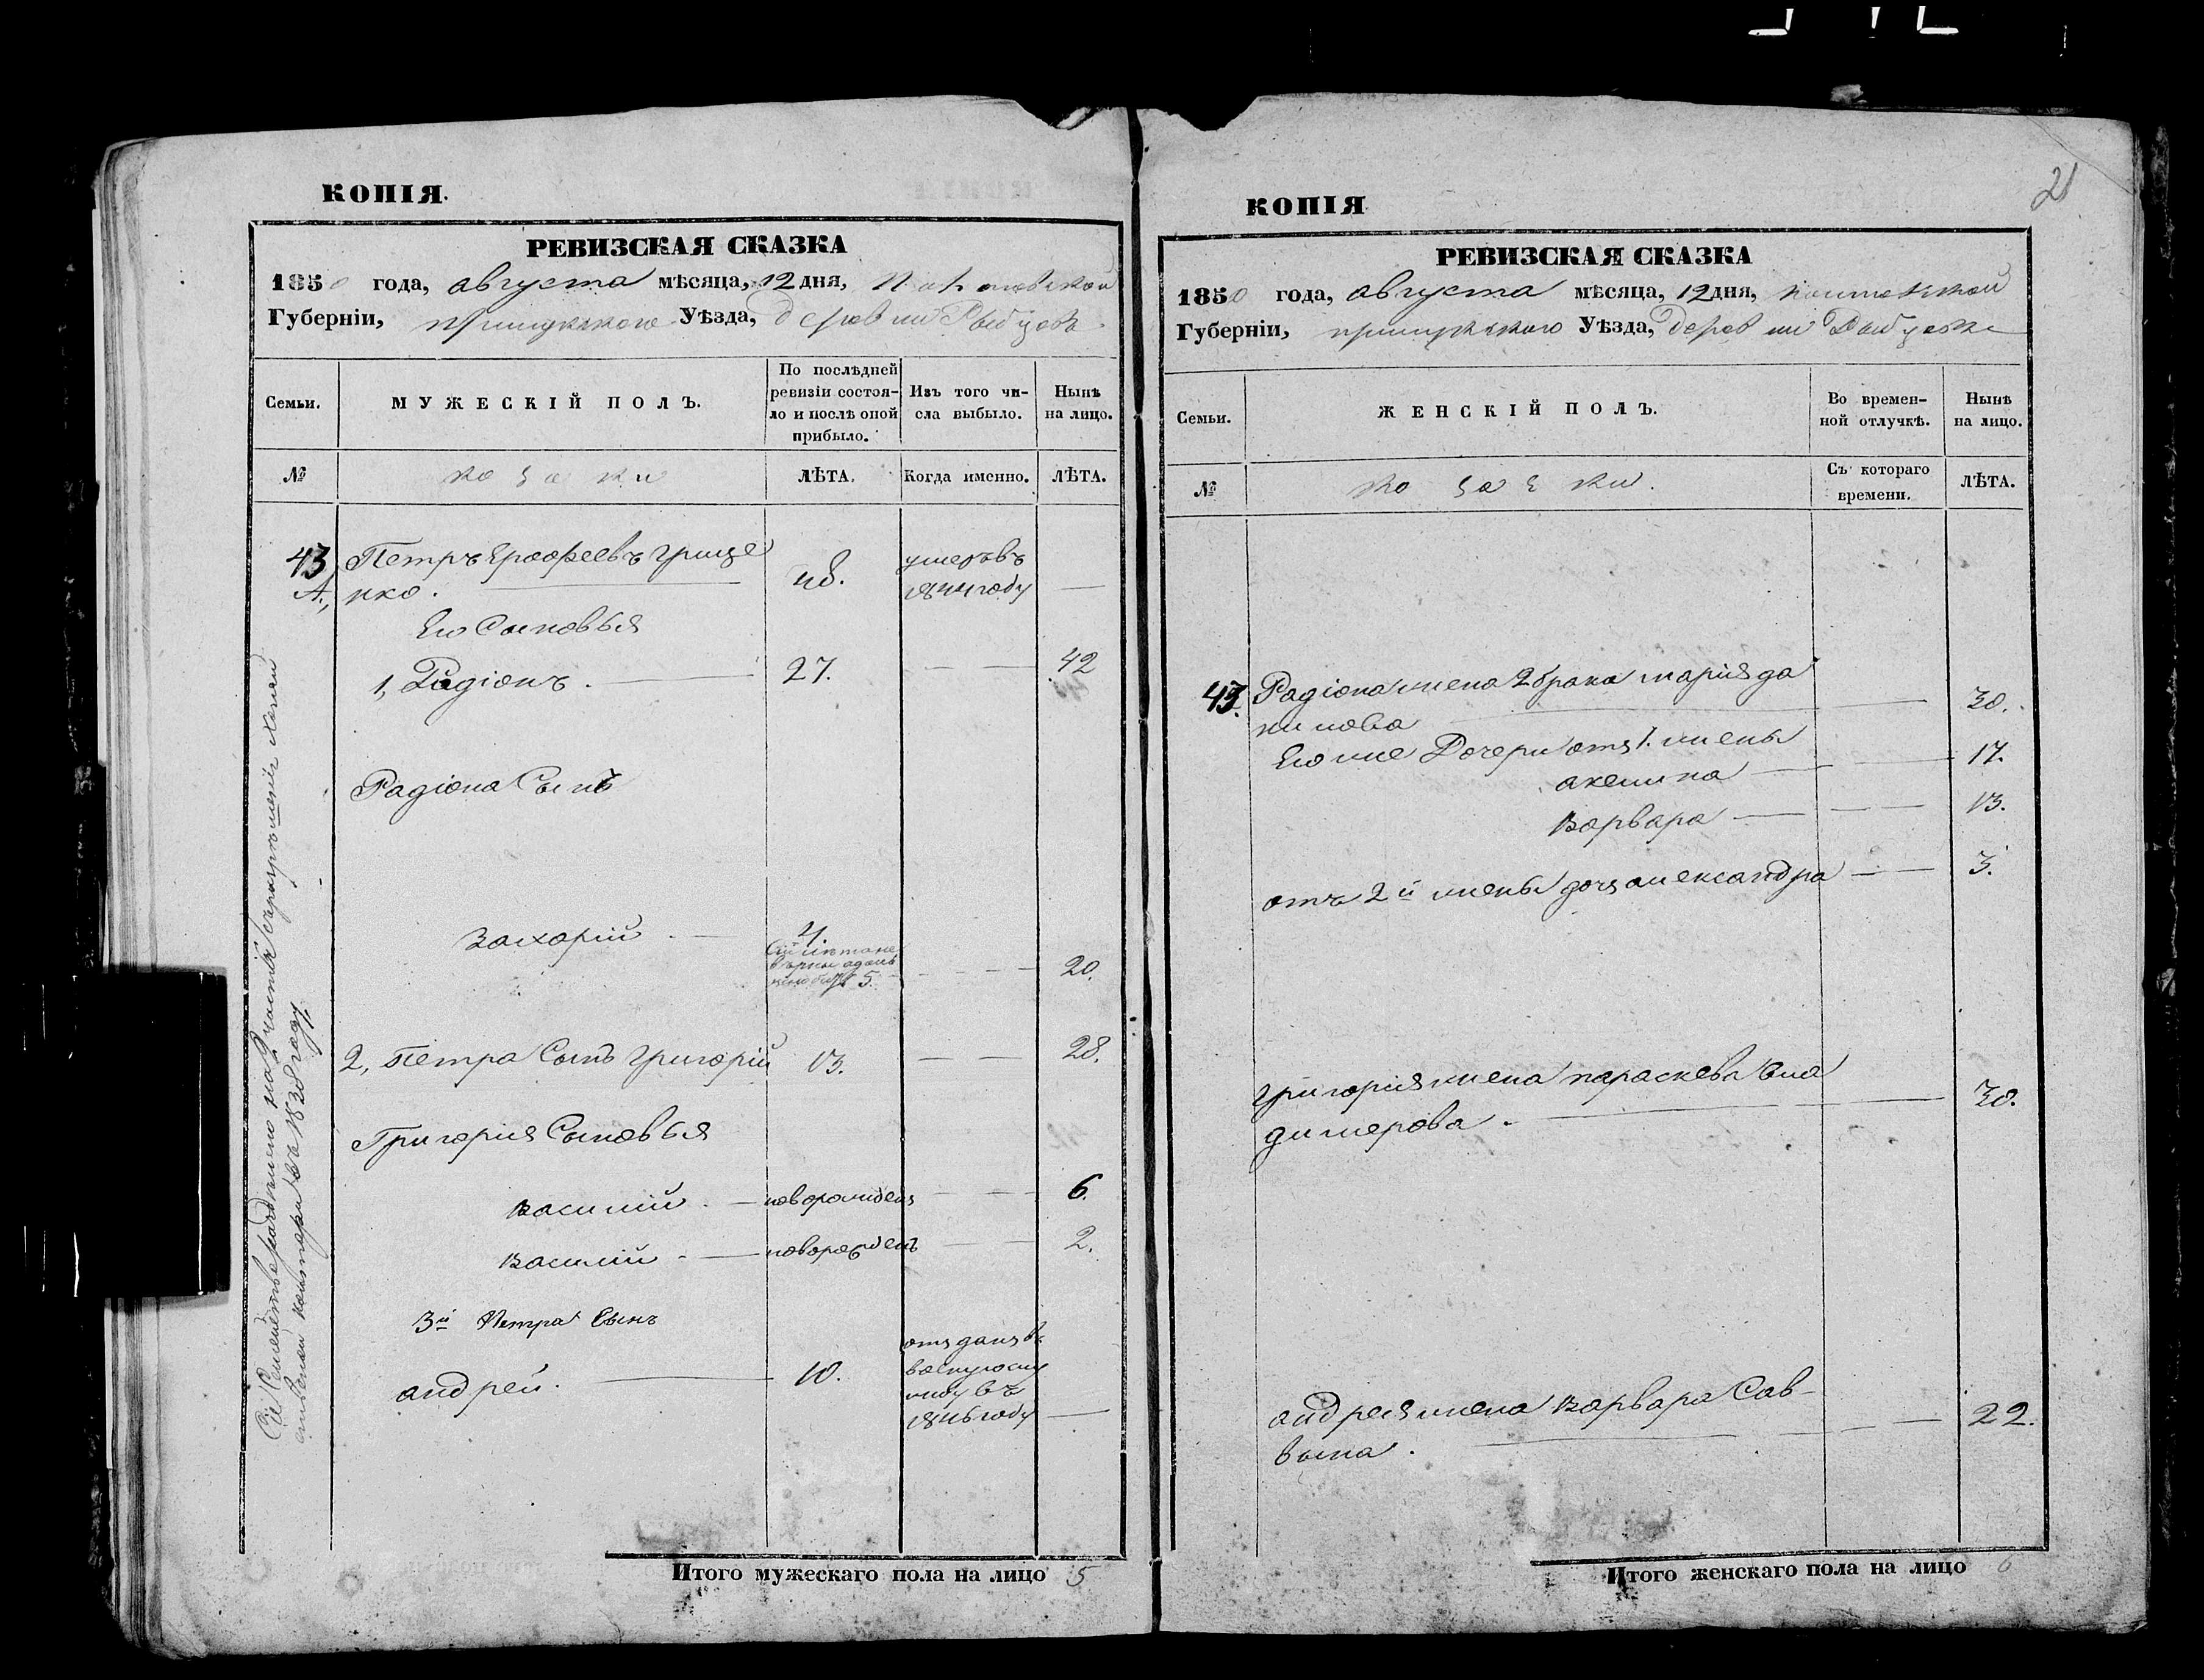 21
КОПІЯ.
РЕВИЗСКАЯ СКАЗКА
1850 года, августа мѣсяца, 12 дня, Полтавской
Губерніи, прилукского Уѣзда, деревни
Семьи.
МУЖЕСКІЙ ПОЛЪ.
По послѣдней
ревизіи состоя-
ло и послѣ оной
прибыло.
Изъ того чи-
сла выбыло.
Нынѣ
на лицо.
№
козаки
ЛѢТА.
Когда именно.
ЛѢТА.
43
Петръ Ерофеевъ Грице
нко.
48.
умеръ въ
1844 году
—
Его Сыновья
1, Радіонъ. 27. — — 42
Радіона Сынъ
Захарій 4.
5. — — 20.
2, Петра Сынъ Григорій 13. — — 28.
Григорія Сыновья
Василій — новорожденъ — — 6.
Василій — новорожденъ — — 2.
3й Петра Сынъ
андрей. 10.
отданъ в
военную слу
жбу въ
1846 году —
Итого мужескаго пола на лицо 5
Сіе Семейство
въ 1838 году
КОПІЯ
РЕВИЗСКАЯ СКАЗКА
1850 года, августа мѣсяца, 12 дня, полтавской
Губерніи, прилукского Уѣзда, деревни
Семьи.
ЖЕНСКІЙ ПОЛЪ.
Во времен-
ной отлучкѣ.
Нынѣ
на лицо.
№
козачки.
Съ котораго
времени.
ЛѢТА.
43. Радіона жена 2 брака марія да
нилова — 30.
Его же Дочери отъ 1. жены
акелина — — 17.
варвара — — 13.
отъ 2й жены дочь александра — — 3.
Григорія жена параскева вла
димерова. — 30.
андрея жена варвара Сав-
вына. — — 22.
Итого женскаго пола на лицо 6